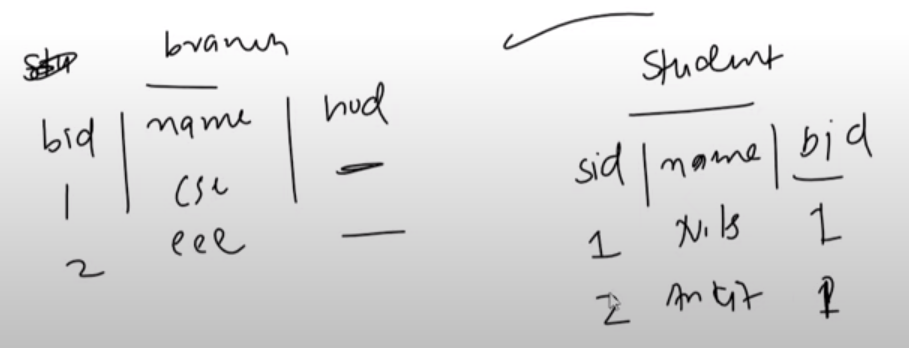 branch
bid | name | hod
1 cse
2 eee
Student
sid | name | bid
1 1
2 Ankit 1